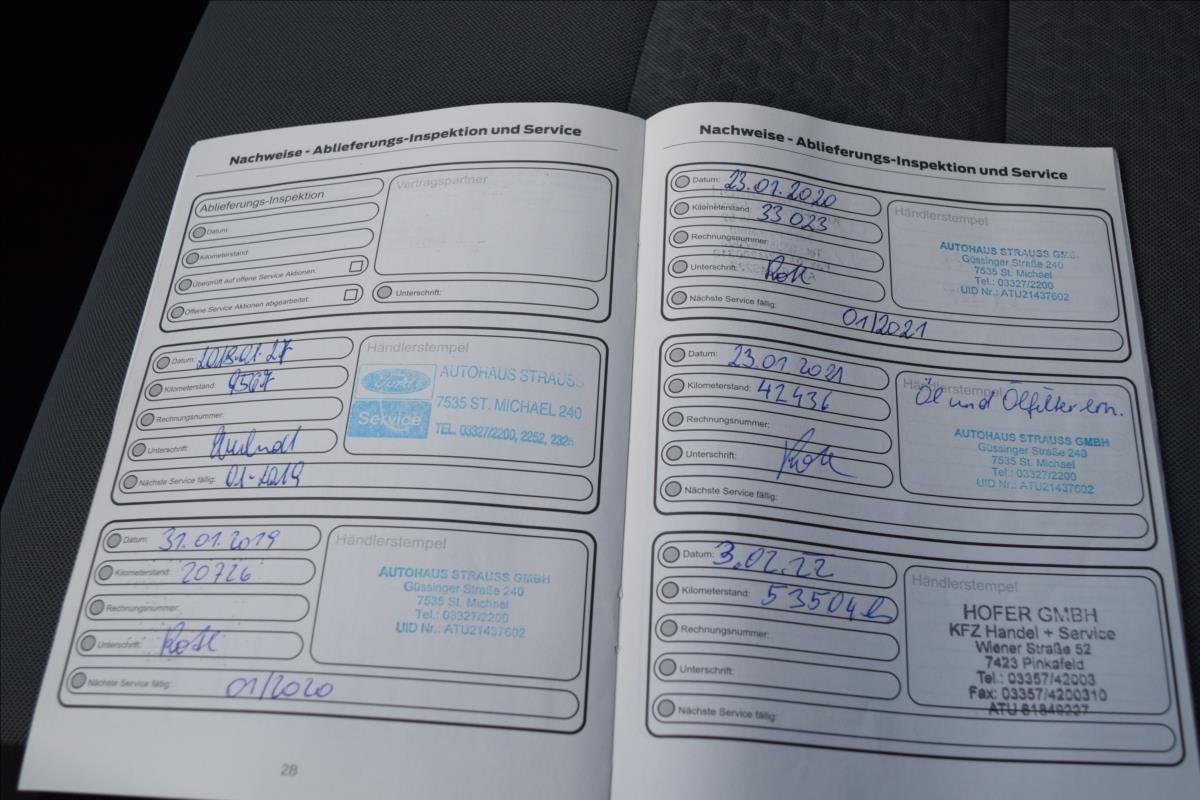 Nachweise - Ablieferungs-Inspektion und Service
Ablieferungs-Inspektion
Vertragspartner
Datum:
Kilometerstand:
Überprüft auf offene Service Aktionen:
Offene Service Aktionen abgearbeitet:
Unterschrift:
Datum: 2018.01.27
Kilometerstand: 9567
Rechnungsnummer:
Unterschrift:
Nächste Service fällig: 01-2019
Händlerstempel
Ford
Service
AUTOHAUS STRAUSS
7535 ST. MICHAEL 240
TEL. 03327/2200, 2252, 232
Datum: 31.01.2019
Kilometerstand: 20726
Rechnungsnummer:
Unterschrift:
Nächste Service fällig: 01/2020
Händlerstempel
AUTOHAUS STRAUSS GMBH
Güssinger Straße 240
7535 St. Michael
Tel.: 03327/2200
UID Nr.: ATU21437602
28
Nachweise - Ablieferungs-Inspektion und Service
Datum: 23.01.2020
Kilometerstand: 33 023
Rechnungsnummer:
Unterschrift:
Nächste Service fällig:
01/2021
Händlerstempel
AUTOHAUS STRAUSS GMB
Güssinger Straße 240
7535 St. Michael
Tel.: 03327/2200
UID Nr.: ATU21437602
Datum: 23.01.2021
Kilometerstand: 42436
Rechnungsnummer:
Unterschrift:
Nächste Service fällig:
Händlerstempel
Öl und Ölfilter ern.
AUTOHAUS STRAUSS GMBH
Güssinger Straße 240
7535 St. Michael
Tel.: 03327/2200
UID Nr.: ATU21437602
Datum: 3.02.22
Kilometerstand: 53504
Rechnungsnummer:
Unterschrift:
Nächste Service fällig:
Händlerstempel
HOFER GMBH
KFZ Handel + Service
Wiener Straße 52
7423 Pinkafeld
Tel.: 03357/42003
Fax: 03357/4200310
ATU 61849227